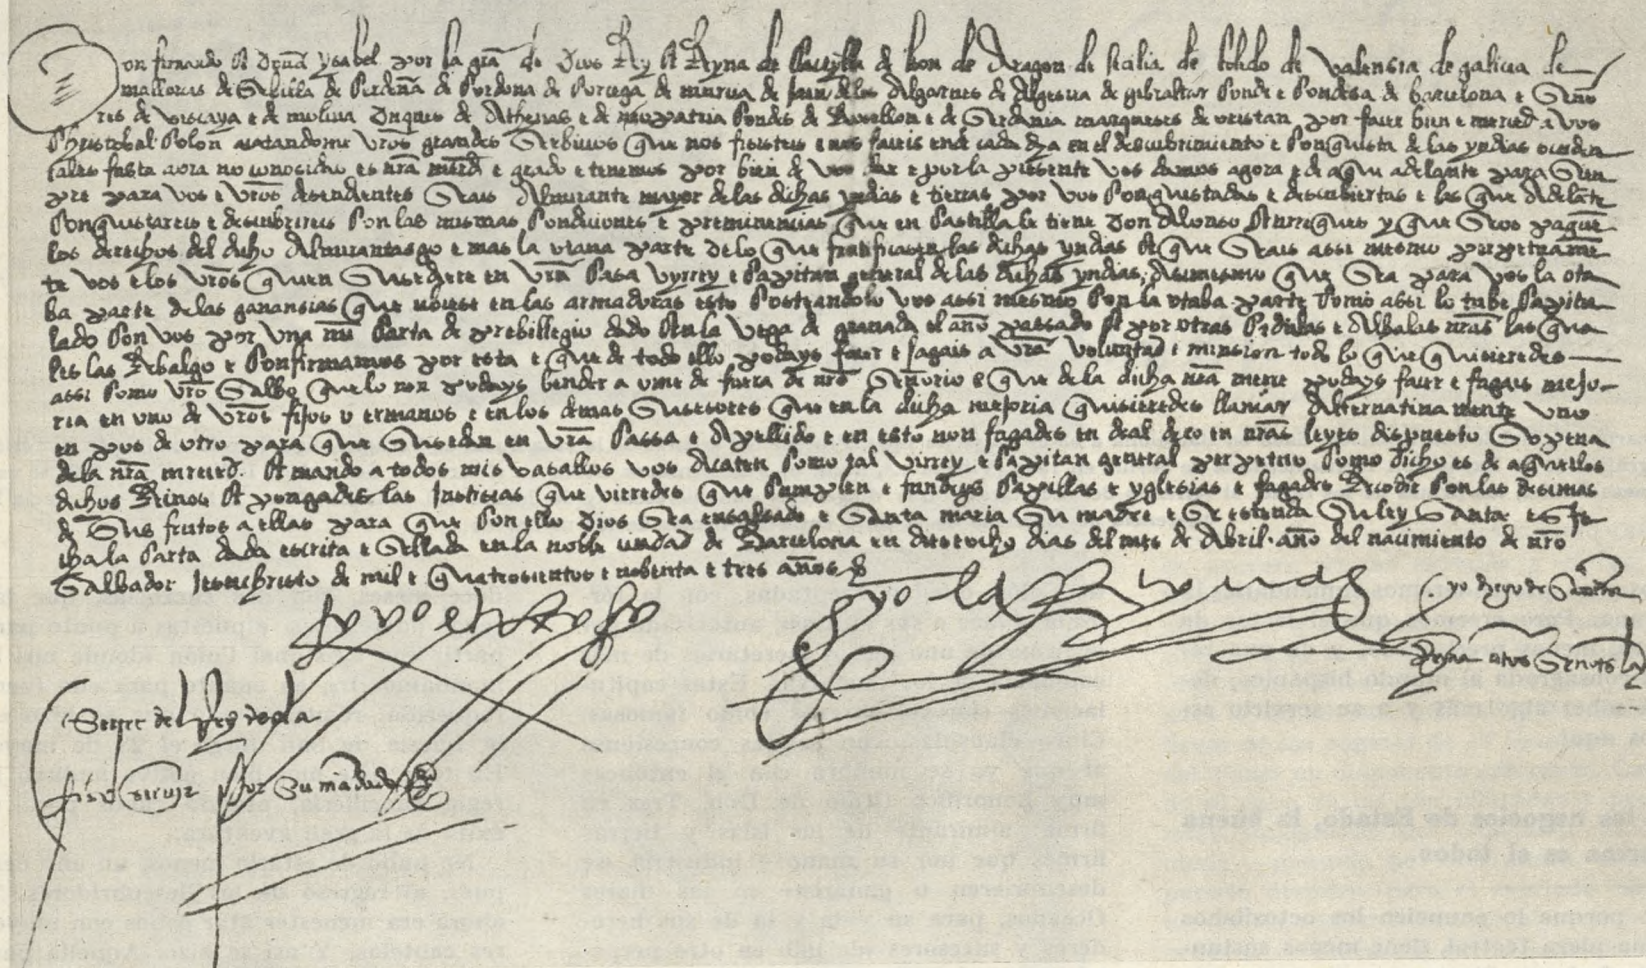 Don fernando & Doña ysabel por la gra de Dios Rey & Reyna de Castylla de leon de Aragon de sicilia de toledo de valencia de galicia de
mallorcas de Sebilla de Cerdeña de Cordoba de Corcega de murcia de jaen de los Algarves de Algezira de gibraltar Conde e Condesa de barcelona e Seño
res de viscaya e de molina Duques de Athenas e de neopatria Condes de Ruisellon e de Serdania marqueses de oristan por faser bien e merced a vos
Christobal Colon acatandome vros grandes Serbicios que nos fisisteis e nos faseis en cada dia en el descubrimiento e Conquista de las yndias occiden
tales fasta aora no conocidas es nra merd e grado e tenemos por bien de vos dar e por la presente vos damos agora e de aqui adelante para Sien
pre para vos e vros desendientes Seais Almirante mayor de las dichas yndias e tierras por vos Conquistadas e descubiertas e las que Adelate
Conquistareis e descubrireis Con las mismas Condiciones e preminencias que en Castilla le tiene Don Alonso Enrriques y que Seos paguen
los derechos del dicho Almirantasgo e mas la otaba parte de lo que frutificasen las dichas yndias & que Seais assi mesmo perpetuame
te vos e los vros quien Susediere en vra Casa vyrrey e Capitan general de las dichas yndias, asimismo que Sea para vos la ota
ba parte de las ganansias que ubiese en las armaduras esto Costeandolo vos assi mesmo Con la otaba parte Como assi lo tube Capitu
lado Con vos por una mi Carta de prebillegio dada En la Vega de granada el año passado & por otras Cedulas e Albalas nras las qua
les las Rebalgo e Confirmamos por esta e que de todo ello podays faser e fagais a vra voluntad e mension todo lo que quisieredes
assi Como vro Salbo que lo non podays bender a ome de fuera de nro Señorio e que de la dicha nra merce podays faser e fagais mejo
ria en uno de vros fijos o ermanos e en los demas Susesores que en la dicha mejoria quisieredes llamar Alternatibamente uno
en pos de otro para que Susedan en vra Cassa e Apellido e en esto non fagades en deal deco en nras leyes dispuesto So pena
de la nra merced. & mando a todos mis vasallos vos Acaten Como tal Virrey e Capitan general perpetuo Como dicho es de aquellos
dichos Reinos & pongades las Justicias que vieredes que Cumplen e fundeys Capillas e yglesias e fagades Recodir Con las desimas
de Sus frutos a ellas para que Con ello Dios Sea ensalsado e Santa maria Su madre e Se estienda Su ley Santa es fe
cha la Carta dada escrita e Sellada en la noble ciudad de Barcelona en diesiocho dias del mes de Abril año del nacimiento de nro
Salbador Jesuchristo de mil e quatrosientos e nobenta e tres años
yo el Rey
yo la Reyna
yo diego de
Reyna
Secre del Rey e de la
por Su mandado